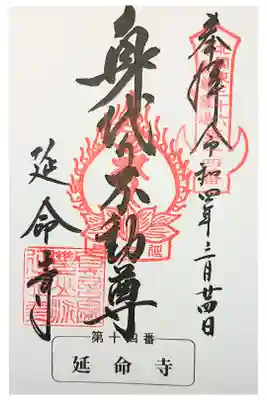 奉拝 令和四年三月廿四日
身代り不動尊
延命寺
第十四番
延命寺